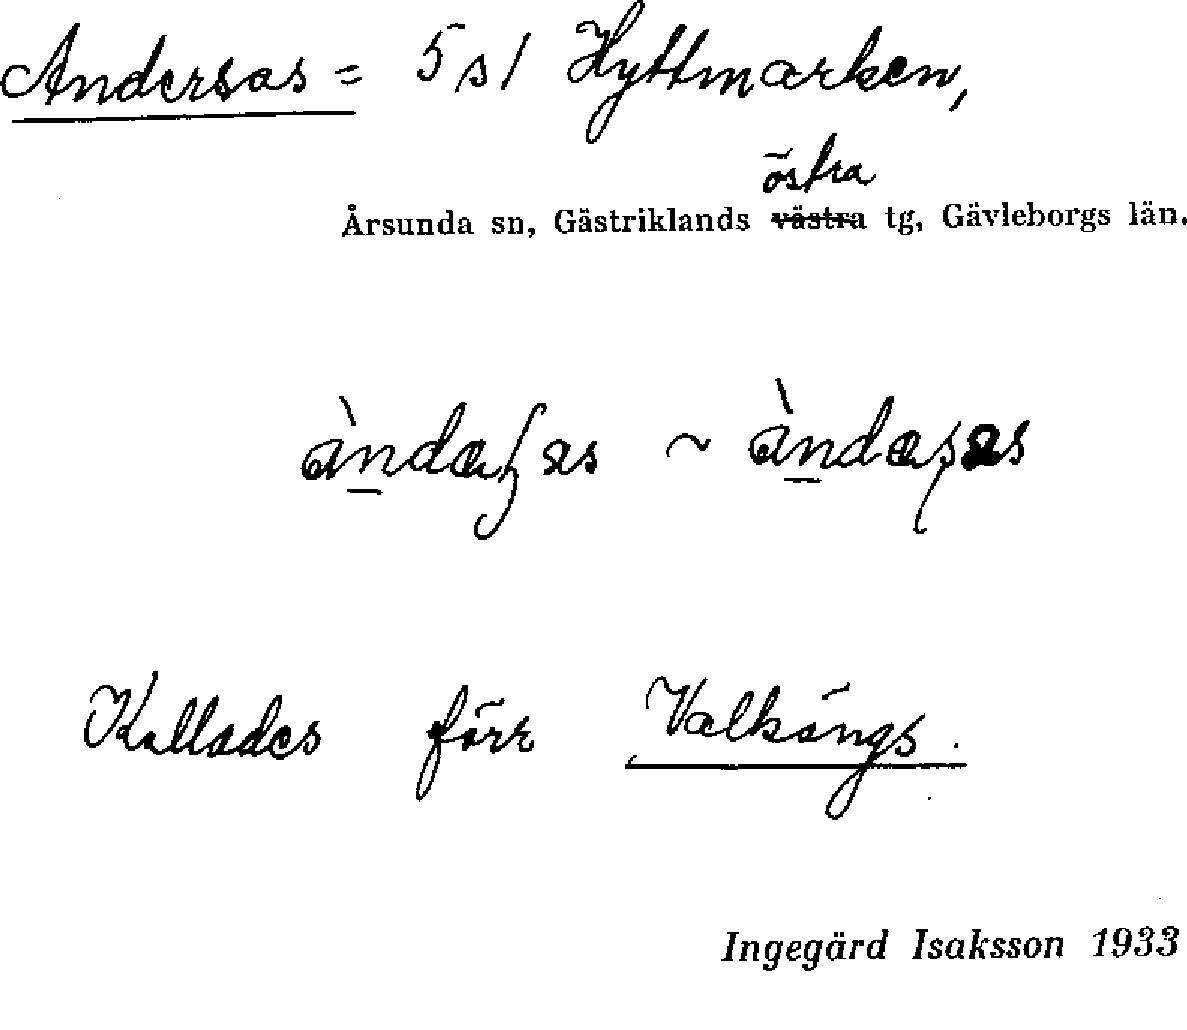 Andersas = 5/s1 Hyttmarken,
östra
Årsunda sn, Gästriklands västra tg, Gävleborgs län.
~
Kallades förr Valkängs.
Ingegärd Isaksson 1933